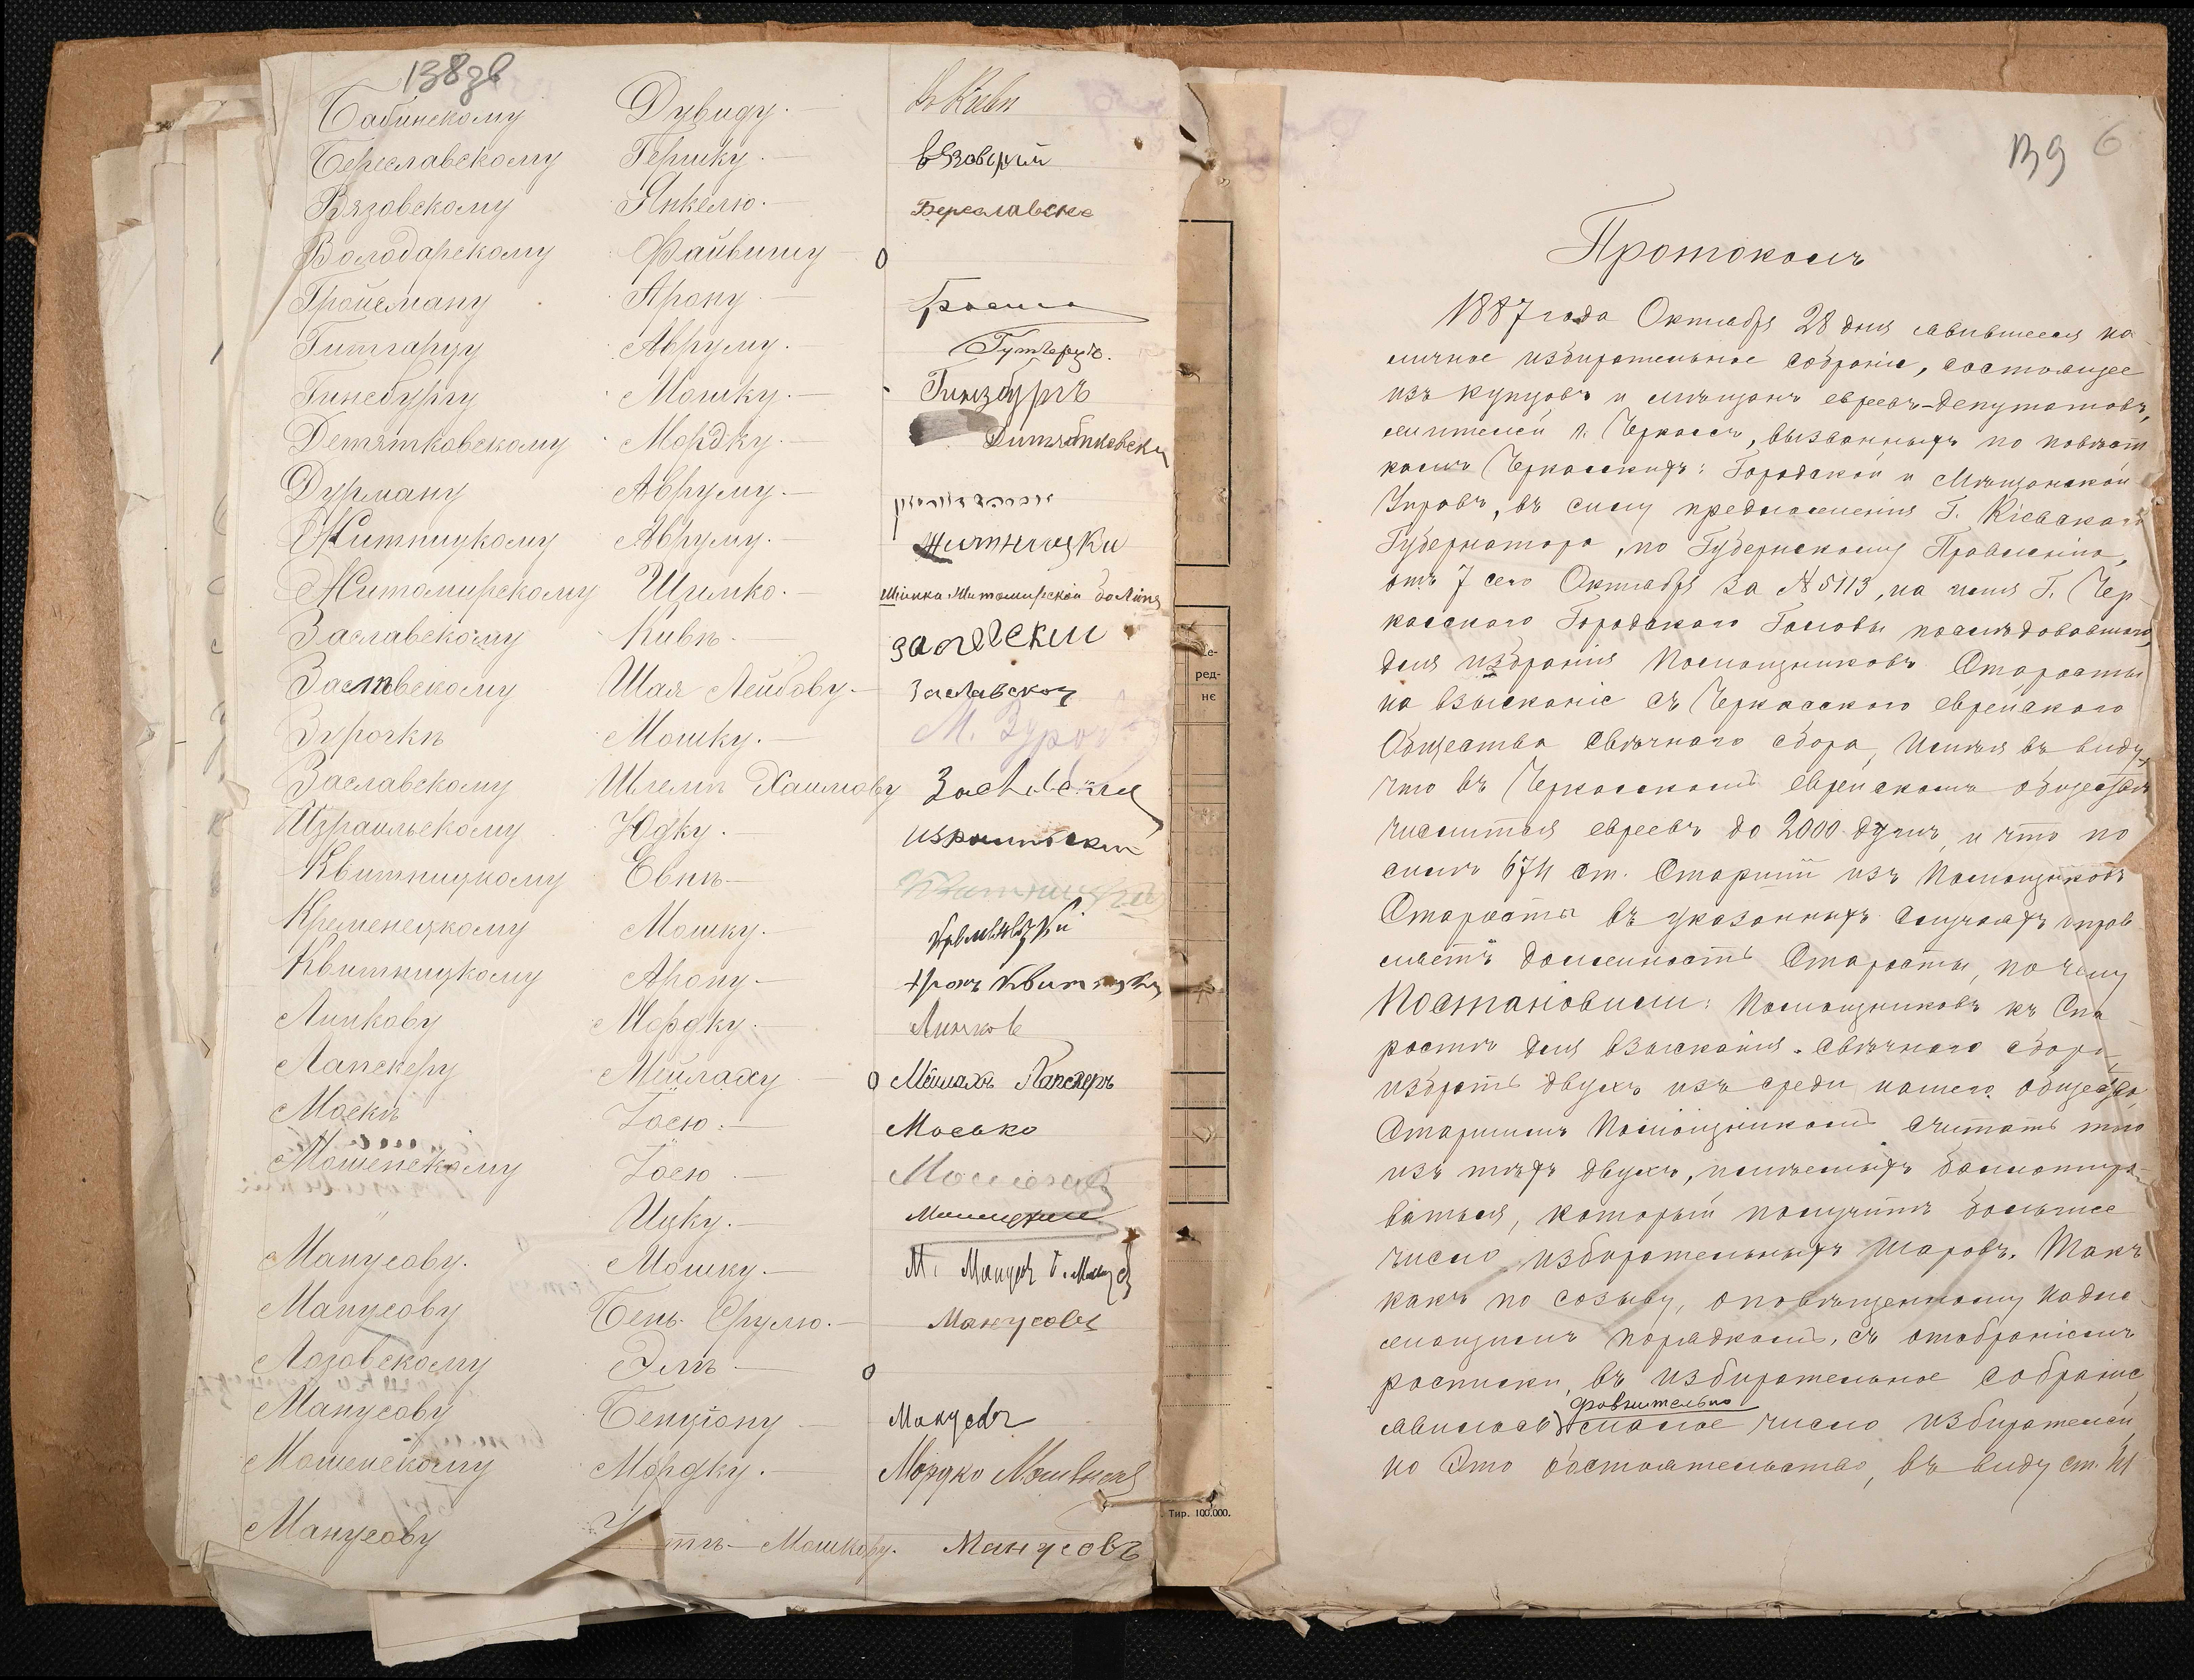 138зв
Бабинскому Дувиду.— въ Кіевѣ
Береславскому Гершку.— вязовский
Вязовскому Янкелю.— Береславски
Володарскому Файвишу — 0
Гройсману Арону —
Гитгарцу Авруму.— Гутгерцъ.
Гинсбургу Мошку.— Гинзбургъ
Детятковскому Мордку.— Дитятковски
Дурману Авруму.—
Житницкому Авруму.— житницки
Житомирскому Шимко.— Шимка Житомирской
Заславскому Кивѣ — заславски
Заславскому Шая Лейбову.— Заславской
Зурочкѣ Мошку.— М. Зуроч
Заславскому Шлемѣ Хаимову Заславски
Израильскому Юдку.— израильски
Квитницкому Евнѣ — Квитницкій
Кременецкому Мошку.— кременецкі
Квитницкому Арону — Аронъ Квитницки
Линкову Мордку — Линков
Лапскеру Мейлаху 0 Мейлахъ Лапскеръ
Москѣ Іосю.— Мосько
Мошенскому Іосю.—
" Ицку.—
Манусову. Мошку.— М. Манусъ
Манусову Бень Срулю.— Манусовъ
Лозовскому Элѣ — 0
Манусову Бенціону — Манусовъ
Мошенскому Мордку.— Мордко Мошенски
Манусову Мошкову. Манусовъ
ред-
нє
Тир. 100.000.
139 6
Протоколъ
1887 года Октября 28 дня явившееся на
личное избирательное собраніе, состоящее
изъ купцовъ и мѣщанъ евреевъ-депутатовъ,
жителей г. Черкасъ, вызванныхъ по повѣст
камъ Черкасскихъ: Городской и Мѣщанской
Управъ, въ силу предложенія Г. Кіевскаго
Губернатора, по Губернскому Правленію,
отъ 7 сего Октября за № 5113, на имя Г. Чер
касскаго Городскаго Головы послѣдовавшаго,
для избранія Помощниковъ Старосты
на взысканіе съ Черкасскаго еврейскаго
Общества свѣчнаго сбора, Имѣя въ виду,
что въ Черкасскомъ еврейскомъ обществѣ
числится евреевъ до 2000 душъ, и что по
силѣ 674 ст. Старшій изъ Помощниковъ
Старосты въ указанныхъ случаяхъ справ
ляетъ должность Старосты, почему
Постановили: Помощниковъ къ Ста
ростѣ для взысканія свѣчнаго сбора
избрать двухъ изъ среди нашего общества,
Старшимъ Помощникомъ считать того
изъ тѣхъ двухъ, имѣемыхъ баллотиро
ваться, который получитъ большее
число избирательныхъ шаровъ. Такъ
какъ по созыву, оповѣщенному надле
жащимъ порядкомъ, съ отобраніемъ
росписки, въ избирательное собраніе
сравнительно
явилось малое число избирателей,
но Это обстоятельство, въ виду ст. 41